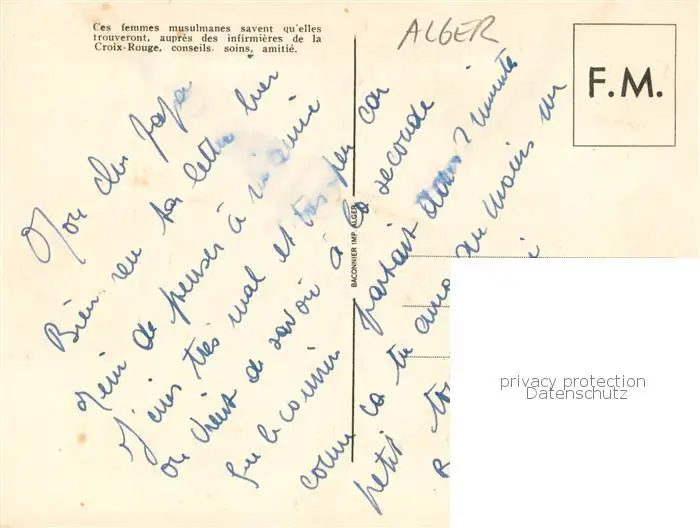 Ces femmes musulmanes savent qu'elles
trouveront, auprès des infirmières de la
Croix-Rouge, conseils, soins, amitié.
ALGER
F.M.
BACONNIER IMP. ALGER
Mon cher papa
Bien reçu ta lettre hier
Merci de penser à
J'écris très mal et très peu car
on vient de savoir à la seconde
que le courrier partait dans 2 minutes
comme ça tu auras au moins un
petit
privacy protection
Datenschutz